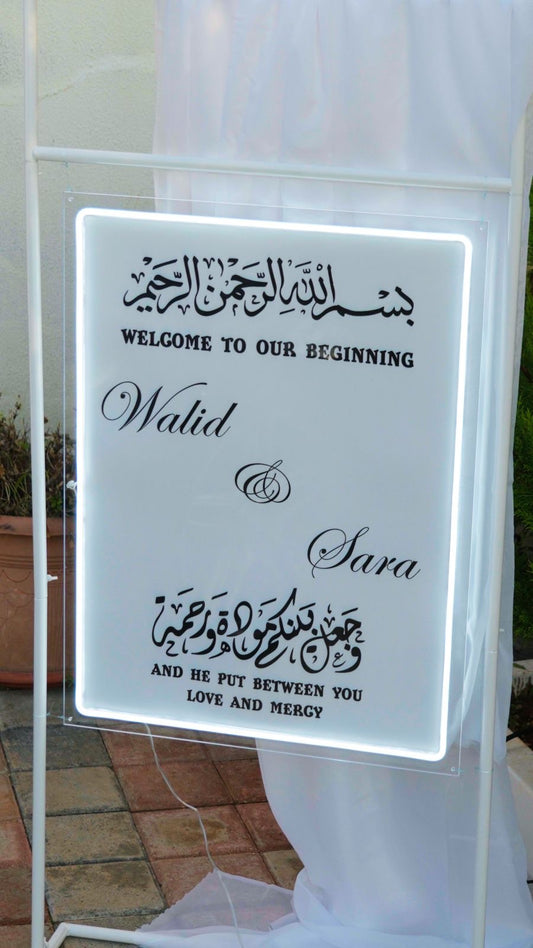 بسم الله الرحمن الرحيم
WELCOME TO OUR BEGINNING
Walid
&
Sara
وجعل بينكم مودة ورحمة
AND HE PUT BETWEEN YOU
LOVE AND MERCY